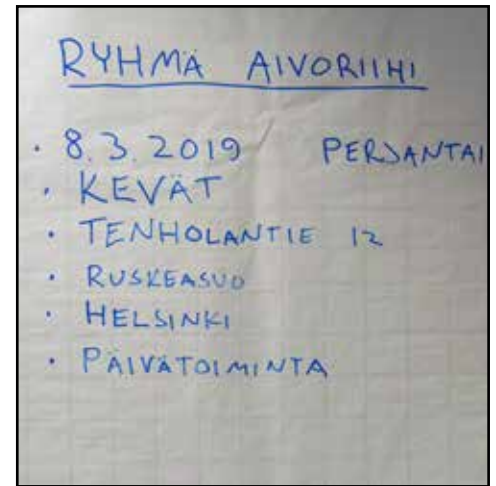 RYHMÄ AIVORIIHI
• 8.3.2019 PERJANTAI
• KEVÄT
• TENHOLANTIE 12
• RUSKEASUO
• HELSINKI
• PÄIVÄTOIMINTA